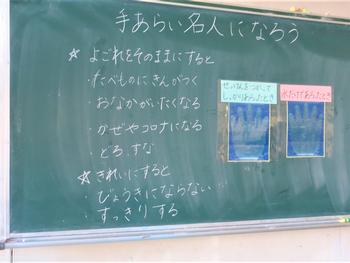 手あらい名人になろう
☆よごれをそのままにすると
・たべものにきんがつく
・おなかがいたくなる
・かぜやコロナになる
・どろ、すな
☆きれいにすると
・びょうきにならない…
・すっきりする
せっけんをつかって
しっかりあらったとき
水だけであらったとき